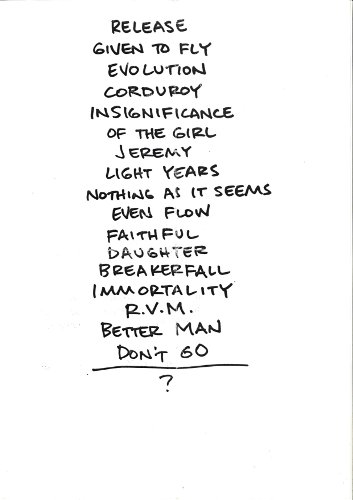 RELEASE
GIVEN TO FLY
EVOLUTION
CORDUROY
INSIGNIFICANCE
OF THE GIRL
JEREMY
LIGHT YEARS
NOTHING AS IT SEEMS
EVEN FLOW
FAITHFUL
DAUGHTER
BREAKERFALL
IMMORTALITY
R.V.M.
BETTER MAN
DON'T GO
?